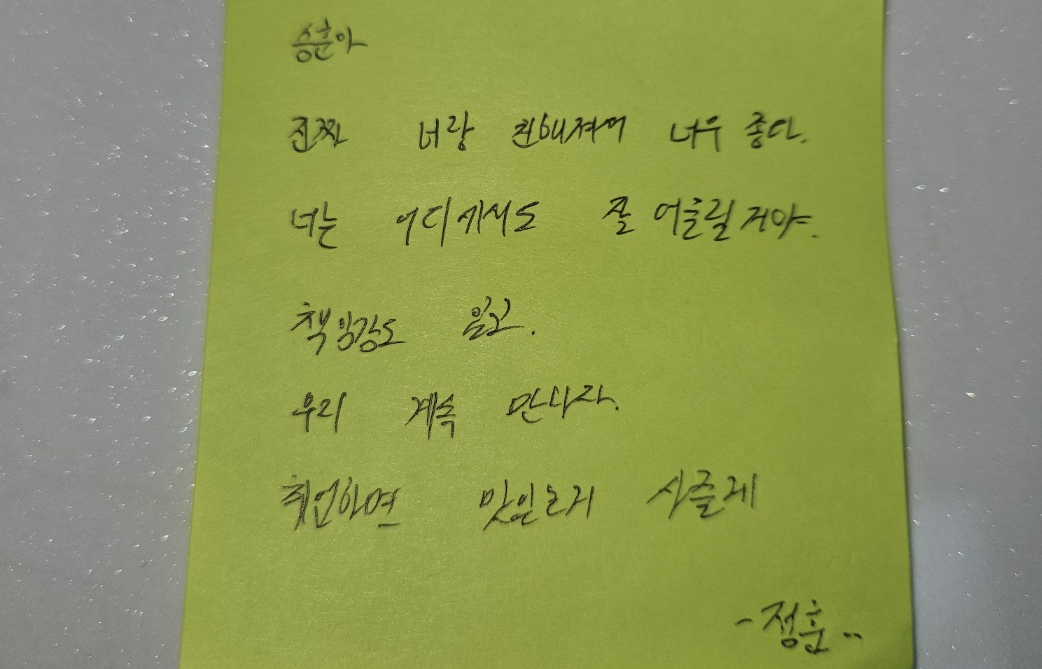 승훈아
진짜 너랑 친해져서 너무 좋다.
너는 어디에서도 잘 어울릴거야.
책임감도 있고.
우리 계속 만나자.
취업하면 맛있는거 사줄게
-정훈..